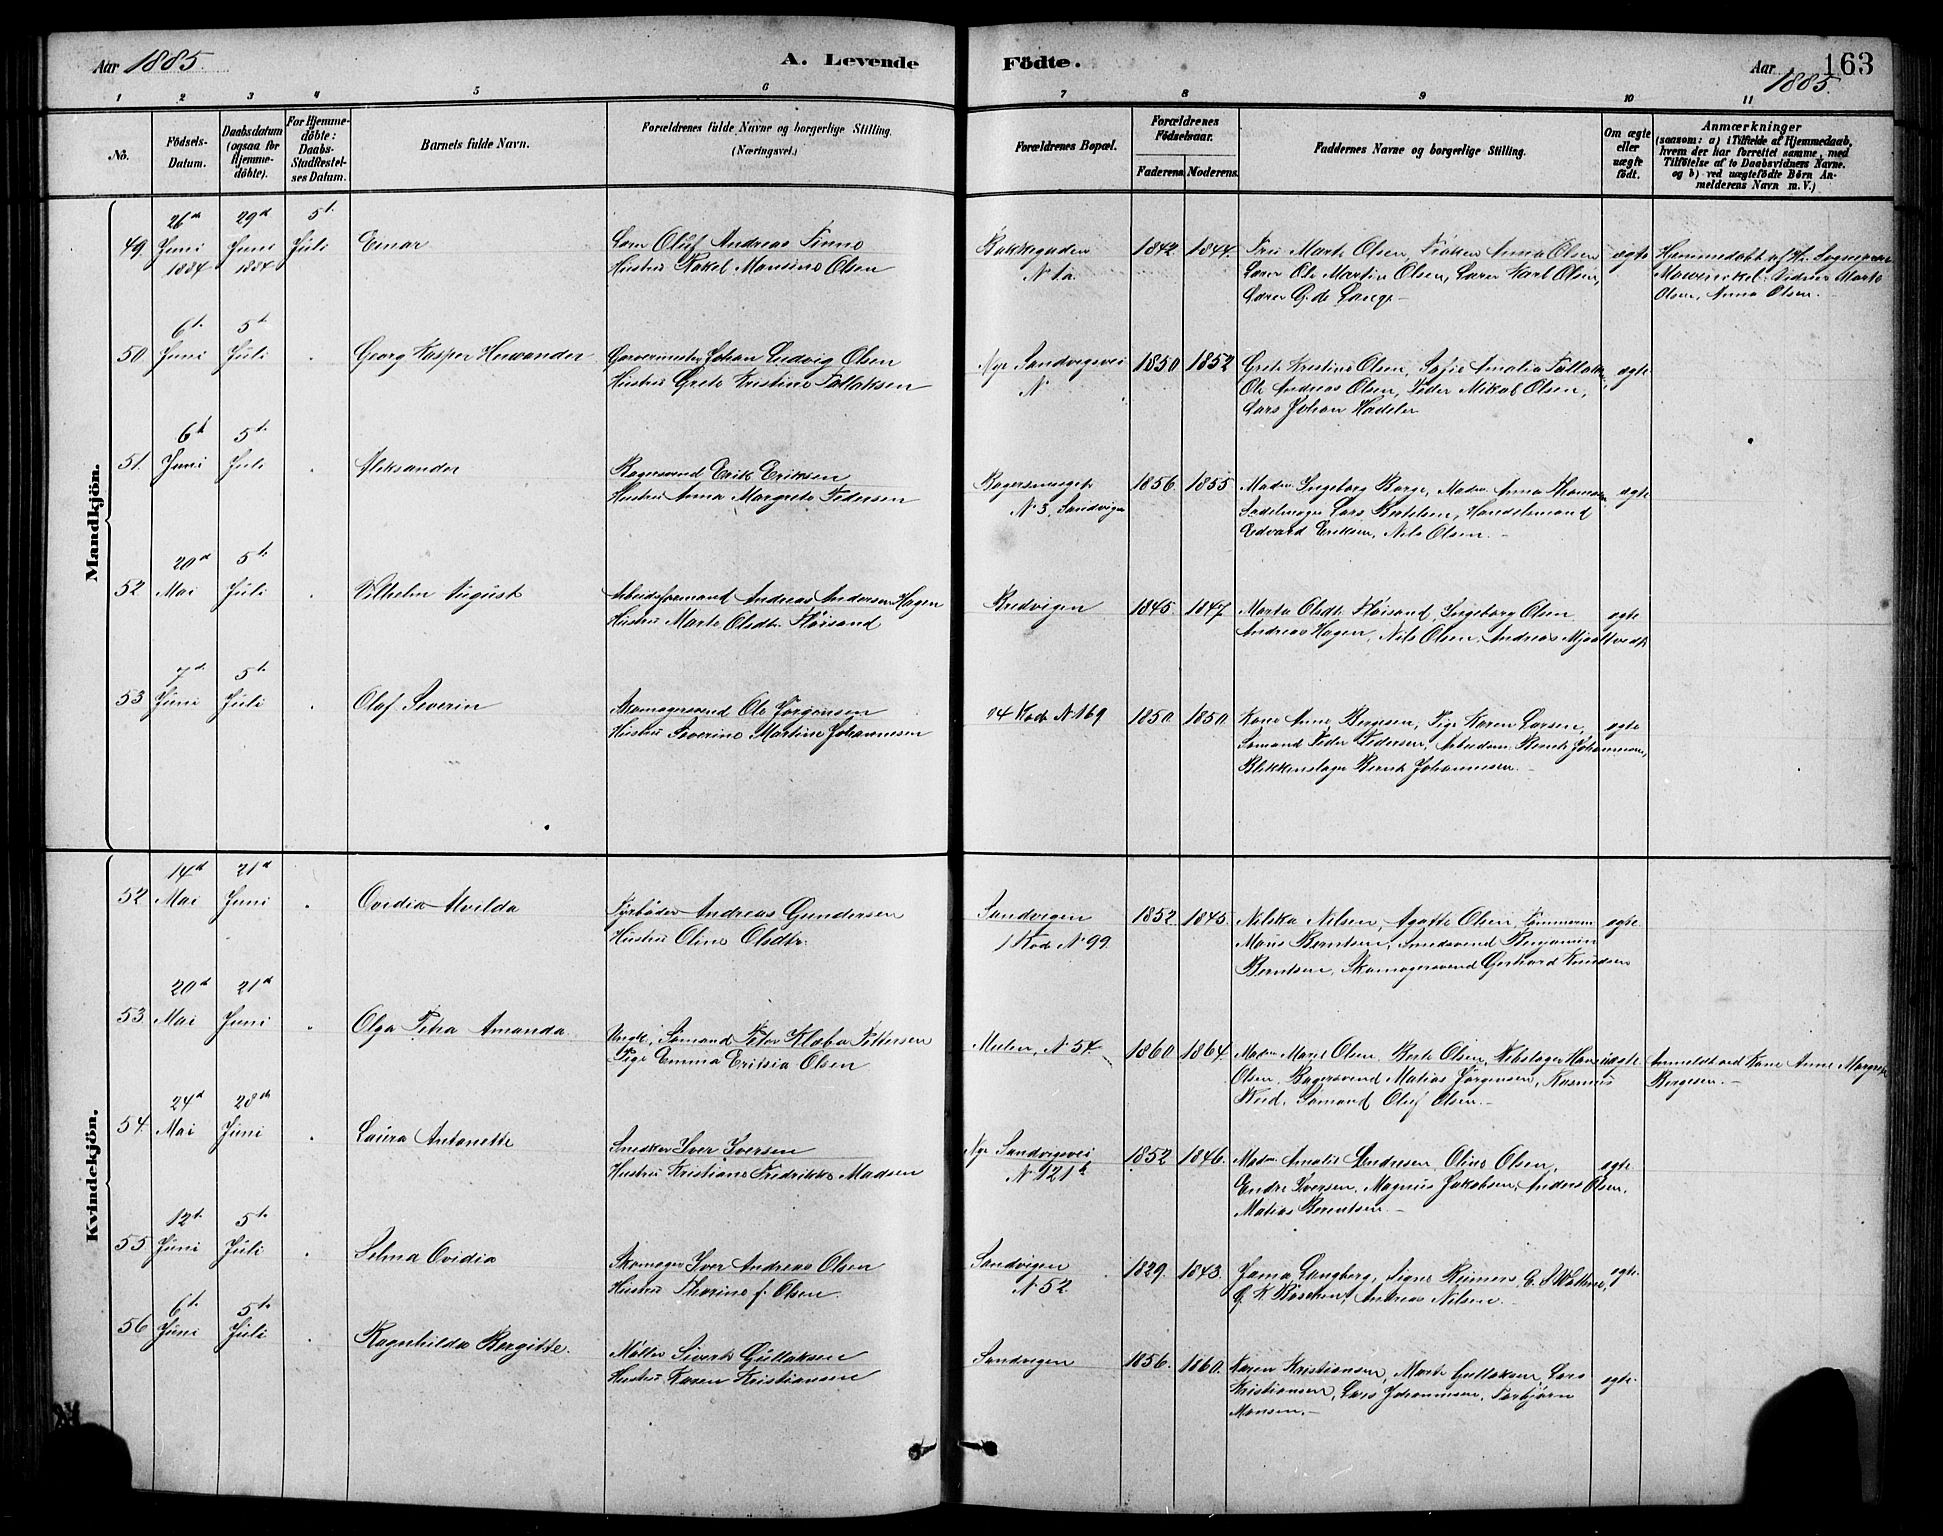 Aar 1885. A. Levende Födte. Aar 1885. 163
1 2 3 4 5 6 7 8 9 10 11
No.
Födsels-Datum.
Daabsdatum (ogsaa for Hjemme-döbte).
For Hjemme-döbte: Daabs-Stadfæstel-ses Datum.
Barnets fulde Navn.
Forældrenes fulde Navne og borgerlige Stilling.
(Næringsvei.)
Forældrenes Bopæl.
Forældrenes Födselsaar.
Faderens. Moderens.
Faddernes Navne og borgerlige Stilling.
Om ægte eller uægte födt.
Anmærkninger
(saasom: a) i Tilfælde af Hjemmedaab,
hvem der har forrettet samme, med
Tilföielse af to Daabsvidners Navne.
og b) ved uægtefödte Börn An-
melderens Navn m. V.)
Mandkjön.
49 26de Juni 1884 29de Juni 1884 5te Juli Einar
Oluf Andreas
Hustru Rakel Monsine Olsen
Bakkegaden
N 1a.
1842 1844
Marte Olsen, Frøken Anna Olsen
Lærer Ole Martin Olsen, Lærer Karl Olsen,
Lærer G. de Lange
ægte
Hjemmedøbt af Hr. Sogneprest
Vidner Marte
Olsen, Anna Olsen.
50 6te Juni 5te Juli Georg Kasper
Garvermester Johan Ludvig Olsen
Hustru Grete Kristine
Nye Sandvigsvei
N
1850 1852
Grete Kristine Olsen, Sofie Amalia
Ole Andreas Olsen, Peder Mikal Olsen,
Lars Johan
ægte
51. 6te Juni 5te Juli Aleksander
Bagersvend Erik Eriksen
Hustru Anna Margrete Pedersen
N 3, Sandvigen
1856. 1855
Madm Ingeborg Borge, Madm Anna
Sadelmager Lars Handelsmand
Edvard Eriksen, Nils Olsen.
ægte
52 20de Mai 5te Juli Vilhelm August
Arbeidsformand Andreas Andersen Hagen
Hustru Marte Olsdtr. Fløisand
Bredvigen
1845. 1847
Marta Olsdtr Fløisand, Ingeborg Olsen
Andreas Hagen, Nils Olsen, Andreas Mjaaltvedt
ægte
53 7de Juni 5te Juli Olaf Severin
Skomagersvend Ole Jørgensen
Hustru Severine Martine Johannesen
24 Rode N 169
1850. 1850.
Kone Anne Bergesen, Pige Karen Larsen,
Sømand Peder Pedersen, Arbeidsm. Johannesen,
Blikkenslager Bernt Johannesen.
ægte
Kvindekjön.
52 14de Mai 21de Juni Ovidia Alvilda
Fyrbøder Andreas Gundersen
Hustru Oline Olsdtr.
Sandvigen
1 Rode N 99.
1852. 1845.
Nelska Nilsen, Agathe Olsen, Tømmerm
Mons Berntsen, Benjamin
Berntsen, Skomagersvend Gerhard Knudsen
ægte
53 20de Mai 21de Juni Olga Petra Amanda
Ungk. Sømand Peter Klæbo Pettersen
Pige Emma Eriksia Olsen
N 54.
1860 1864
Madm Maret Olsen, Berte Olsen, Rebslager Hans
Olsen, Bagersvend Matias Jørgensen, Rasmus
Sømand Oluf Olsen.
uægte
Anmeldt ved Kone Anne Margrete
Bergesen.
54. 24de Mai 28de Juni Laura Antonette
Snedker Iver Iversen
Hustru Kristiane Fredrikke Madsen
Nye Sandvigsvei
N 121b
1852 1846.
Madm Amalie Endresen, Oline Olsen,
Endre Iversen, Magnus Jakobsen, Anders Olsen,
Matias Berentsen.
ægte
55 12te Juni 5te Juli Selma Ovidia
Skomager Iver Andreas Olsen
Hustru Thorine f. Olsen.
Sandvigen
N 52
1829. 1843.
Langberg, Signe Reimers,
Andreas Nilsen.
ægte.
56 6te Juni 5te Juli Ragnhilda Bergitte.
Møller Sivert Gullaksen
Hustru Karen Kristiansen
Sandvigen
1856. 1860.
Karen Kristiansen, Marte Gullaksen, Lars
Kristiansen, Lars Johannesen, Torbjørn
Monsen.
ægte.